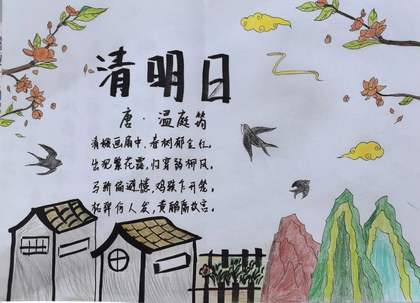 清明日
唐·温庭筠
清娥画扇中,春树郁金红。
出犯繁花露,归穿弱柳风。
马骄偏避幰,鸡骇乍开笼。
柘弹何人发,黄鹂隔故宫。